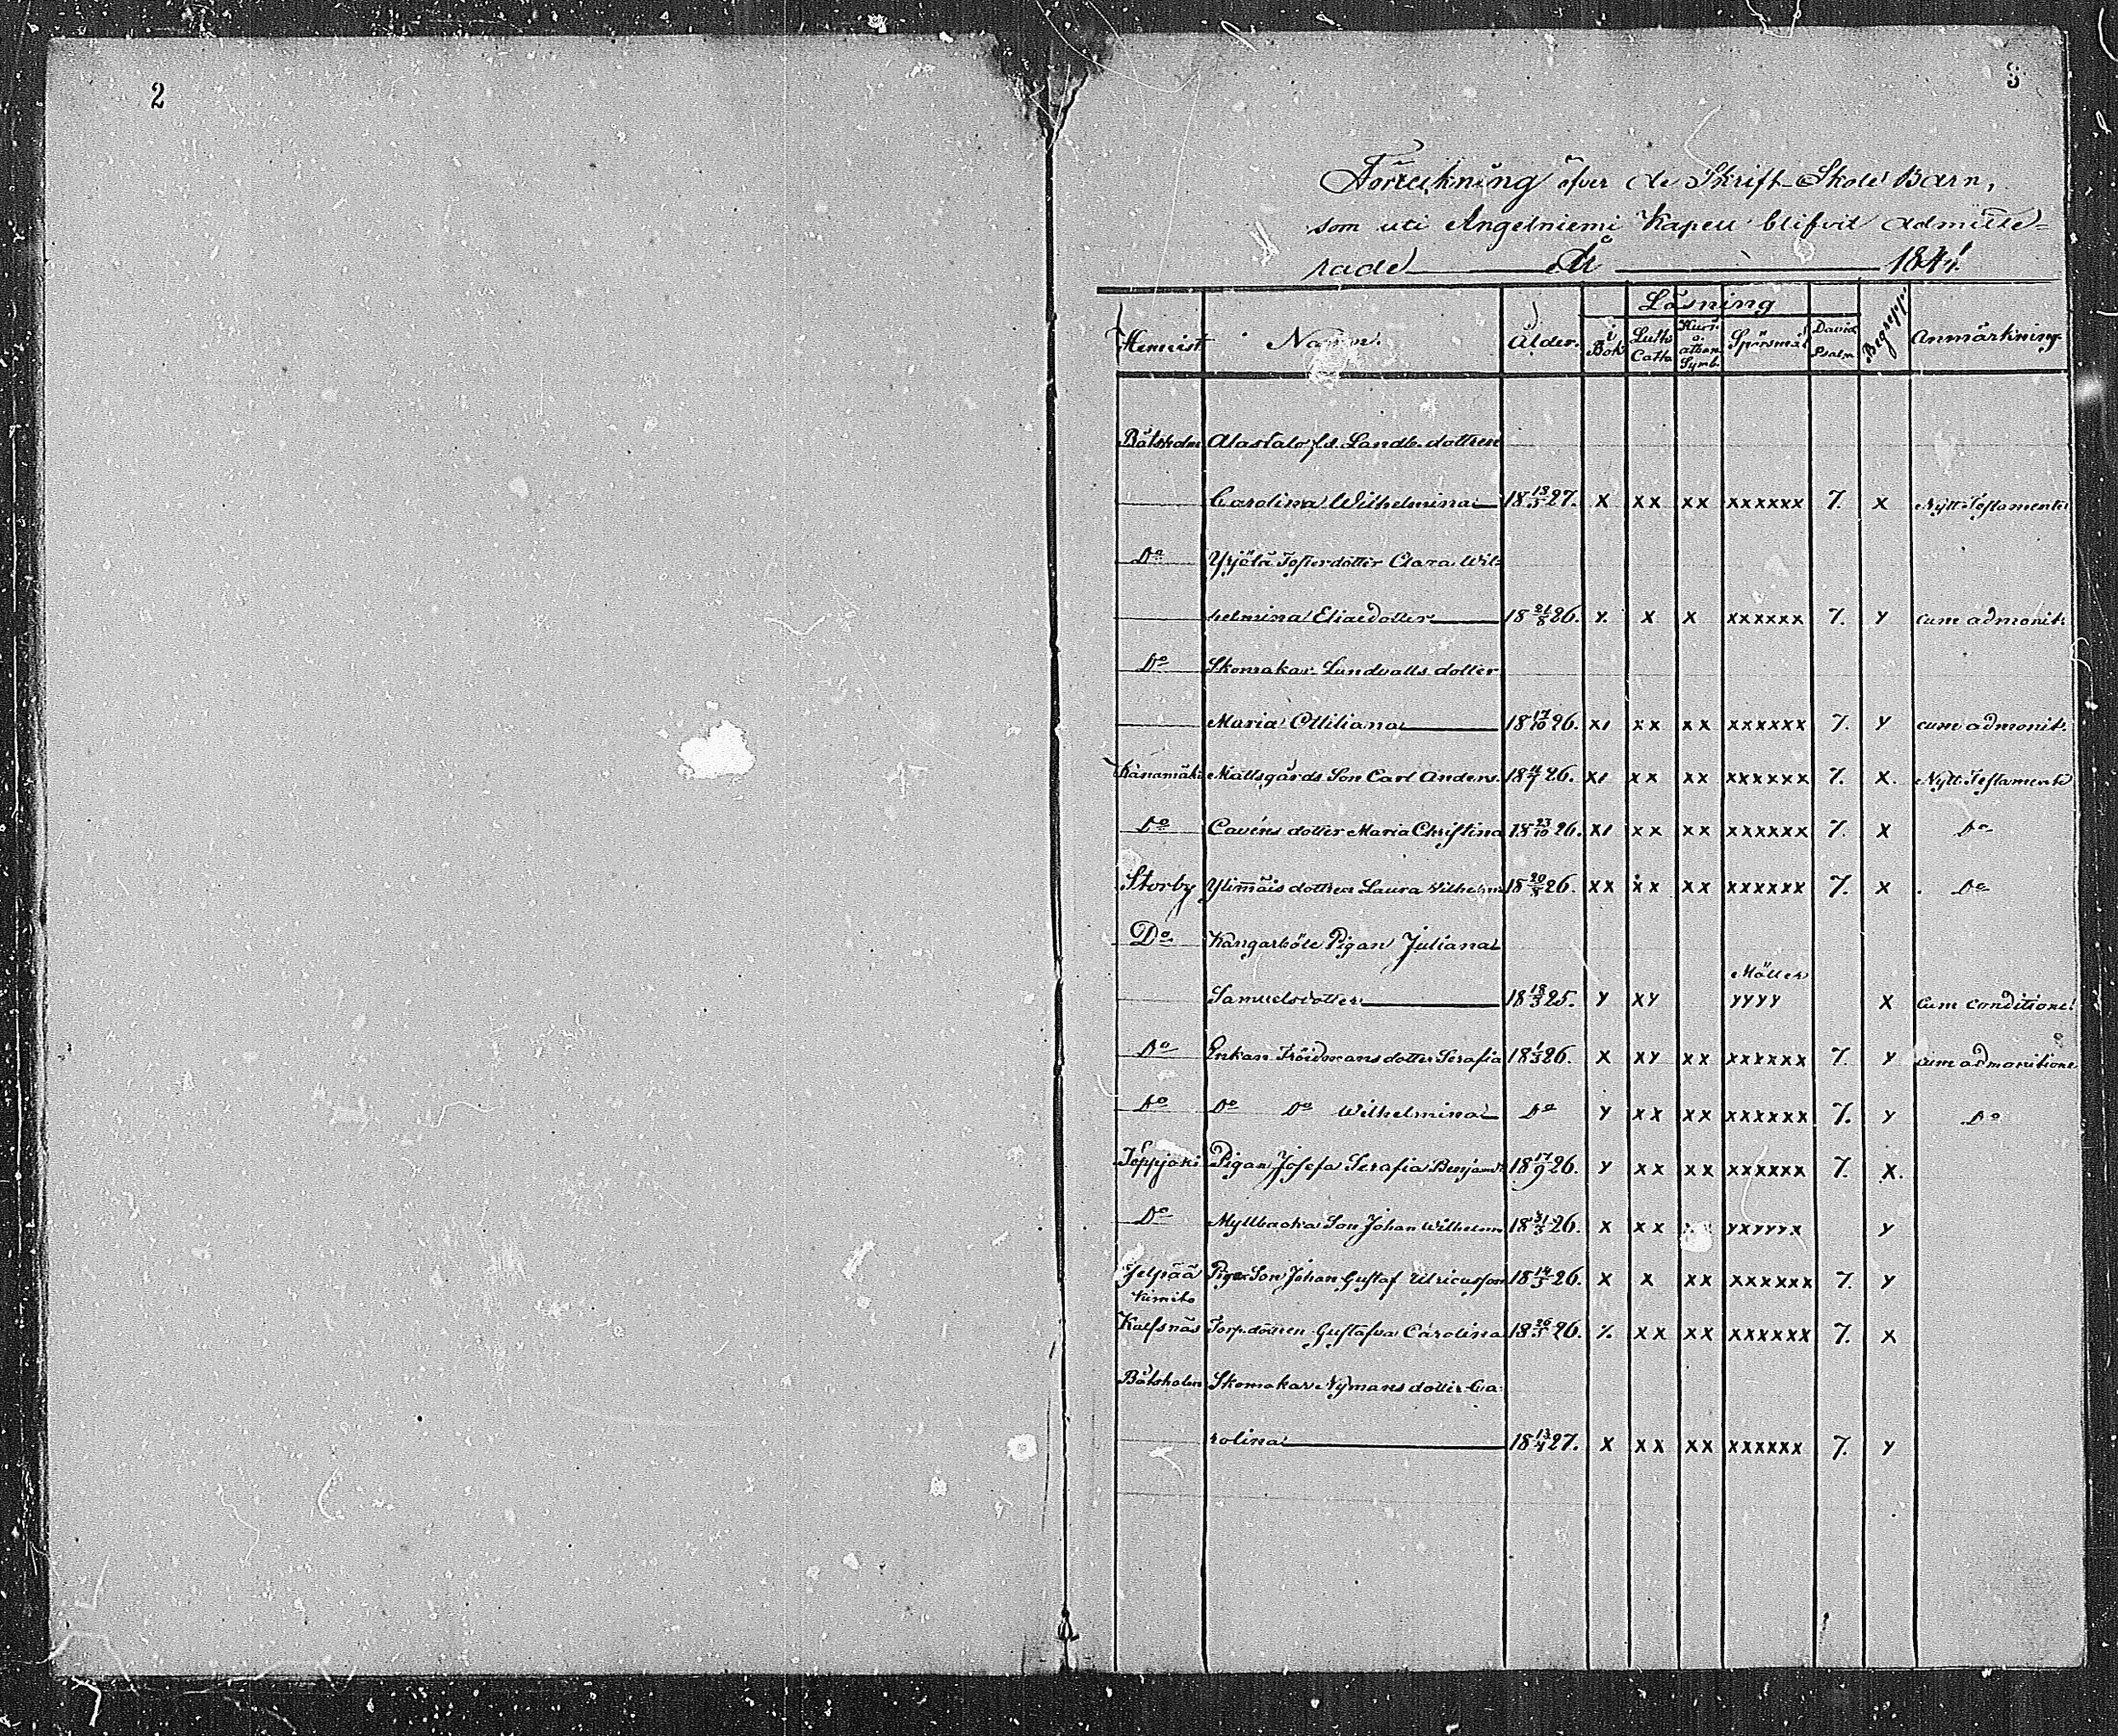 2
3
Förteckning öfver de Skrift-Skole Barn,
som uti Angelniemi Kapell blifvit admitte=
rade År 1841.
Läsning
Hemvist Namn. Ålder. i Bok Luth. Catta Hust. o. athan. Symb. Spörsmål Davids Psalm Begrepp Anmärkning
Båtsholm Alastalo fd. Landb. dottren
Carolina Wilhelmina 18 13/5 27. x xx xx xxxxxx 7. x Nytt Testamente
Do Yrjälä Fosterdotter Clara Wil=
helmina Eliaedotter 18 21/8 26. y. x x xxxxxx 7. y cum admonit.
Do Skomakar Lundvalls dotter
Maria Ottiliana 18 17/10 26. xı xx xx xxxxxx 7. y cum admonit.
Kanamäki Mattsgårds Son Carl Anders. 18 11/7 26. xı xx xx xxxxxx 7. x. Nytt Testamente
Do Cavéns dotter Maria Christina 18 23/10 26. xı xx xx xxxxxx 7. x Do
Storby Ylimäis dottren Laura Wilhelm 18 20/8 26. xx xx xx xxxxxx 7. x Do
Do Kangarböle Pigan Juliana
Möller
Samuelsdotter 18 18/3 25. y xy yyyy x Cum conditione
Do Enkan Fröidmans dotter Serafia 18 1/3 26. x xy xx xxxxxx 7. y cum admonitione
Do Do Do Wilhelmina Do y xx xx xxxxxx 7. y Do
Töppjoki Pigan Josefa Serafia Benjamsd 18 17/9 26. y xx xx xxxxxx 7. x.
Do Myllbacka Son Johan Wilhelm 18 31/5 26. x xx yxyyyx y
Jelpää Pigas Son Johan Gustaf Ulricusson 18 14/3 26. x x xx xxxxxx 7. y
Kimito
Kalfsnäs Torp. dottren Gustafva Carolina 18 26/5 26. ⁒ xx xx xxxxxx 7. x
Båtsholm Skomakar Nymans dotter Ca
rolina 18 13/4 27. x xx xx xxxxxx 7. y